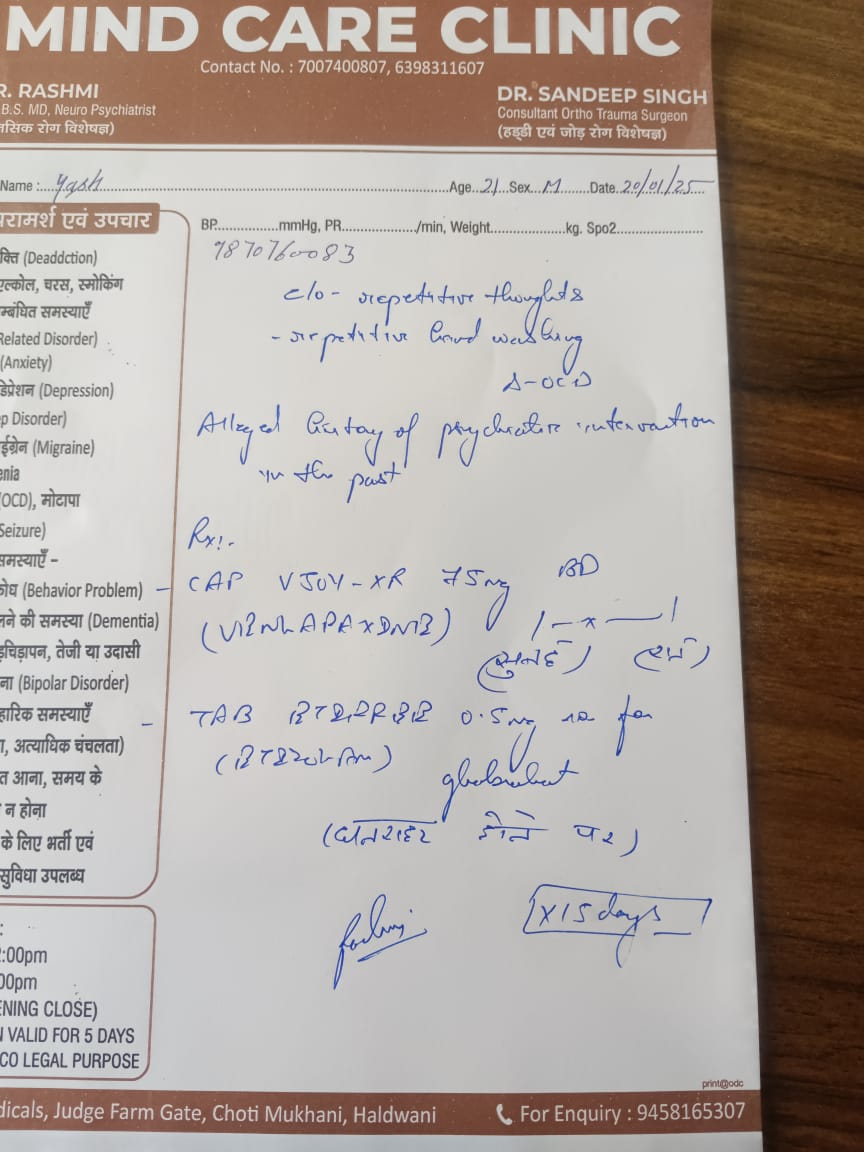 MIND CARE CLINIC
Contact No. : 7007400807, 6398311607
R. RASHMI
B.S. MD, Neuro Psychiatrist
नसिक रोग विशेषज्ञ)
DR. SANDEEP SINGH
Consultant Ortho Trauma Surgeon
(हड्डी एवं जोड़ रोग विशेषज्ञ)
Name :....Yash....Age..21..Sex..M....Date..20/01/25....
BP...............mmHg, PR.................../min, Weight...................kg. Spo2......................
9870760083
परामर्श एवं उपचार
क्ति (Deaddction)
एल्कोल, चरस, स्मोकिंग
म्बंधित समस्याएँ
Related Disorder)
(Anxiety)
डिप्रेशन (Depression)
p Disorder)
ईग्रेन (Migraine)
enia
(OCD), मोटापा
Seizure)
समस्याएँ –
कोध (Behavior Problem)
लने की समस्या (Dementia)
चिड़ापन, तेजी या उदासी
ना (Bipolar Disorder)
हारिक समस्याएँ
ा, अत्याधिक चंचलता)
त आना, समय के
न होना
के लिए भर्ती एवं
सुविधा उपलब्ध
c/o - repetitive thoughts
- repetitive hand washing
Δ-OCD
Alleged history of psychiatric intervention
in the past
Rx:-
- CAP VJOY-XR 75mg BD
1 — x — 1
(सुबह)
- TAB 0.5mg for
ghabrahat
(घबराहट होने पर)
x15 days
:
:00pm
00pm
ENING CLOSE)
N VALID FOR 5 DAYS
CO LEGAL PURPOSE
print@odc
dicals, Judge Farm Gate, Choti Mukhani, Haldwani
For Enquiry : 9458165307